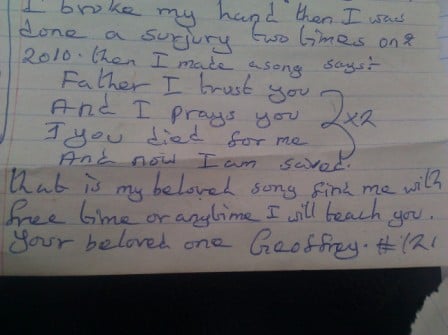 I broke my hand then I was
done a surjury two times on
2010. then I made a song says:-
Father I trust you
And I prays you 2x2
I you died for me
And now I am saved.
that is my beloved song find me with
free time or anytime I will teach you.
Your beloved one Geoffrey. #121